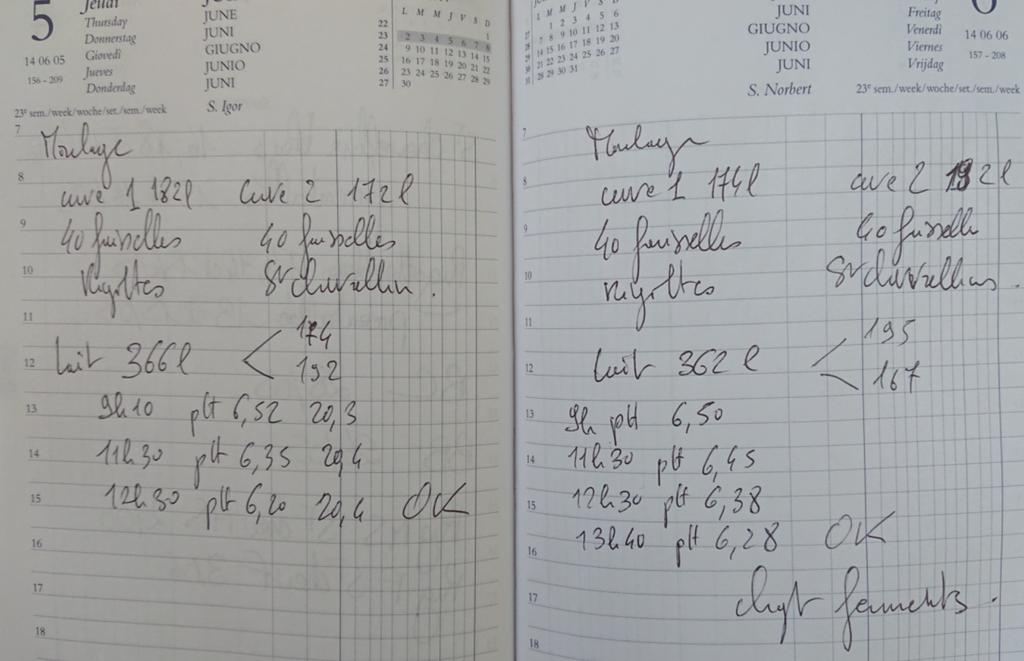 5
Jeudi
Thursday
Donnerstag
Giovedì
Jueves
Donderdag
JUNE
JUNI
GIUGNO
JUNIO
JUNI
14 06 05
156 - 209
S. Igor
23e sem./week/woche/set./sem./week
L M M J V S D
22 1
23 2 3 4 5 6 7 8
24 9 10 11 12 13 14 15
25 16 17 18 19 20 21 22
26 23 24 25 26 27 28 29
27 30
7
Moulage
8
cuve 1 182l cuve 2 172l
9
40 faisselles 40 faisselles
10
Rigottes St Marcellin.
11
174
12 lait 366l
192
13 9h10 pH 6,52 20,3
14 11h30 pH 6,35 20,4
15 12h30 pH 6,20 20,4 OK
16
17
18
JUNI
GIUGNO
JUNIO
JUNI
Freitag
Venerdì
Viernes
Vrijdag
6
14 06 06
157 - 208
S. Norbert
23e sem./week/woche/set./sem./week
L M M J V S D
1 2 3 4 5 6
7 8 9 10 11 12 13
14 15 16 17 18 19 20
21 22 23 24 25 26 27
28 29 30 31
7
Moulage
8
cuve 1 174l cuve 2 192l
9
40 faisselles 40 faisselle
10
Rigottes St Marcellins.
11
195
12 lait 362 l
167
13 9h pH 6,50
14 11h30 pH 6,45
15 12h30 pH 6,38
13h40 pH 6,28 OK
16
17 chgt ferments.
18